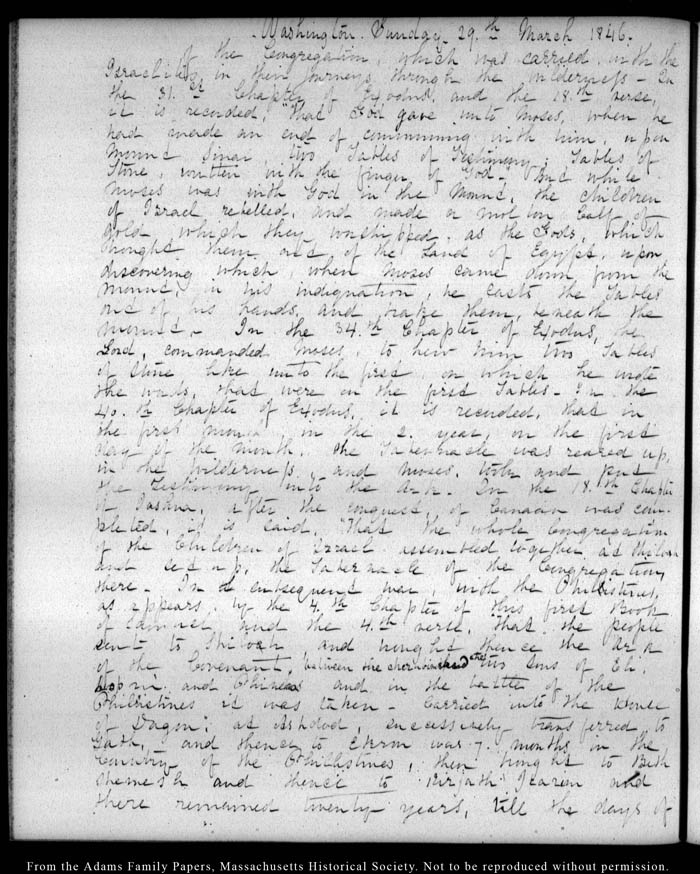 Washington. Sunday 29.th March 1846.
of the Congregation, which was carried, with the
Israelites, in their journeys through the Wilderness - In
the 31.st Chapter of Exodus, and the 18.th verse,
it is recorded, "that God gave unto Moses, when he
had made an end of communing with him, upon
Mount Sinai, two Tables of Testimony, Tables of
Stone, written with the finger of God - And while
Moses was with God in the Mount, the children
of Israel rebelled, and made a molten Calf of
gold, which they worshipped, as the Gods, which
brought them out of the Land of Egypt, upon
discovering which, when Moses came down from the
Mount, in his indignation, he casts the Tables
out of his hands, and brake them, beneath the
Mount. In the 34.th Chapter of Exodus, the
Lord, commanded Moses, to hew him two Tables
of Stone like unto the first, on which he wrote
the words, that were in the first Tables - In the
40.th Chapter of Exodus, it is recorded, that in
the first month, in the 2. year, on the first
day of the month, the Tabernacle was reared up,
in the Wilderness, and Moses, took and put
the Testimony into the Ark. In the 18.th Chapter
of Joshua, after the conquest, of Canaan was com-
pleted, it is said, "that the whole Congregation
of the Children of Israel assembled together at Shiloh
and set up, the Tabernacle of the Congregation,
there. In a subsequent war, with the Philistines,
as appears, by the 4.th Chapter of this first Book
of Samuel, and the 4.th verse, that the people
sent to Shiloh and brought thence the Ark
of the Covenant, between the cherubims and the two sons of Eli
Hophni and Phineas and in the battle of the
Philistines it was taken - Carried into the House
of Dagon; at Ashdod, successively transferred to
Gath, and thence to Ekron was 7. months in the
Country of the Philistines, then brought to Beth
shemesh and thence to Kirjath Jearim and
there remained twenty years, till the days of
From the Adams Family Papers, Massachusetts Historical Society. Not to be reproduced without permission.